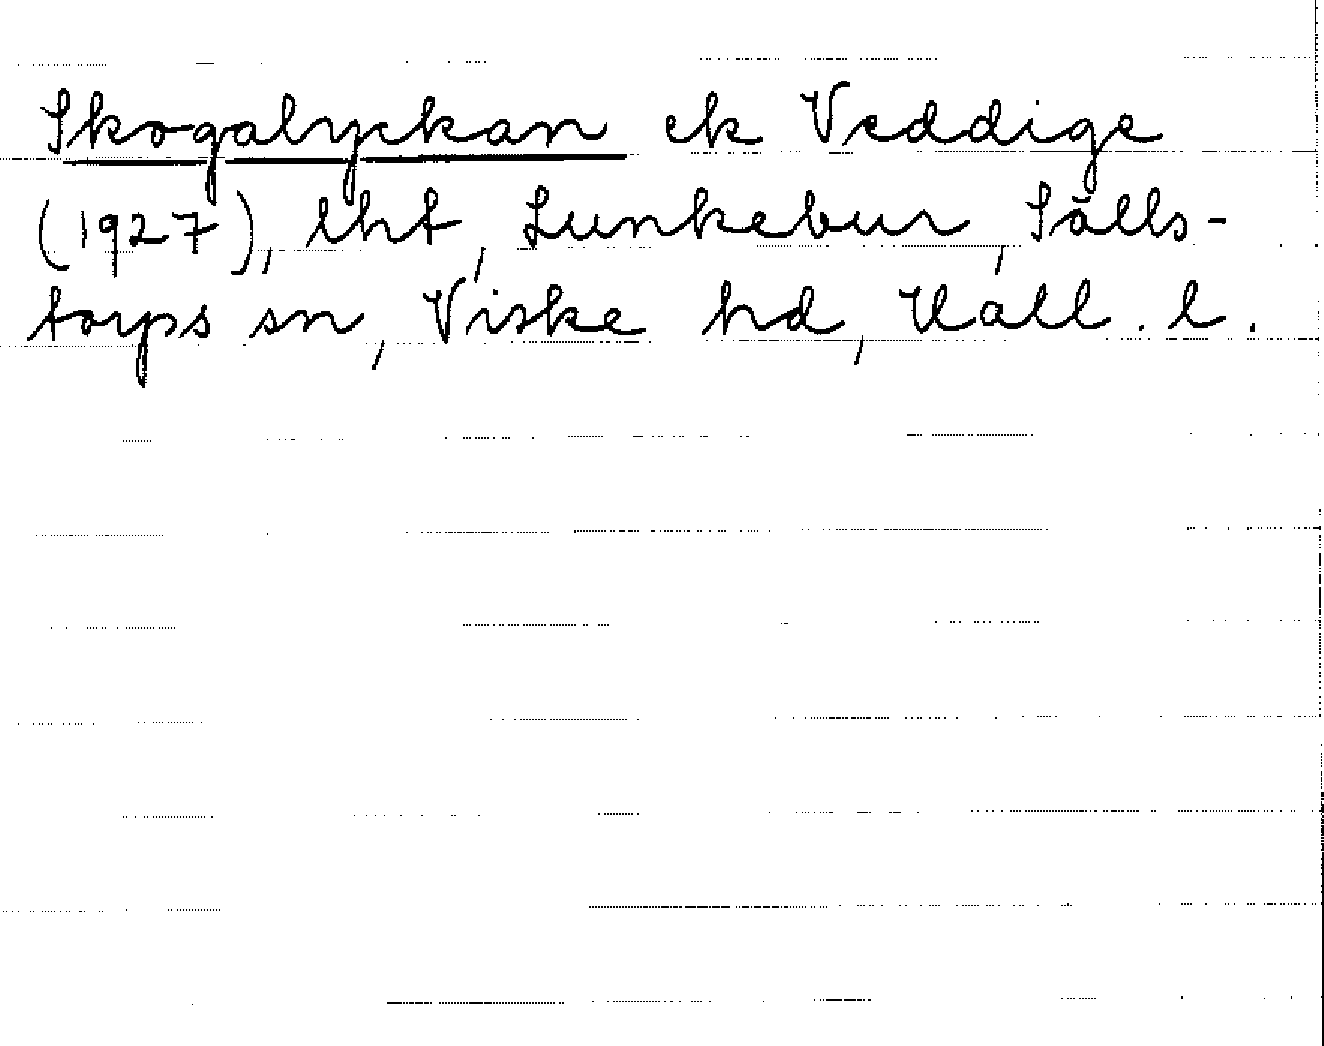 Skogalyckan ek Veddige
(1927), lht, Lunkebur, Sälls-
torps sn, Viske hd, Hall. l.